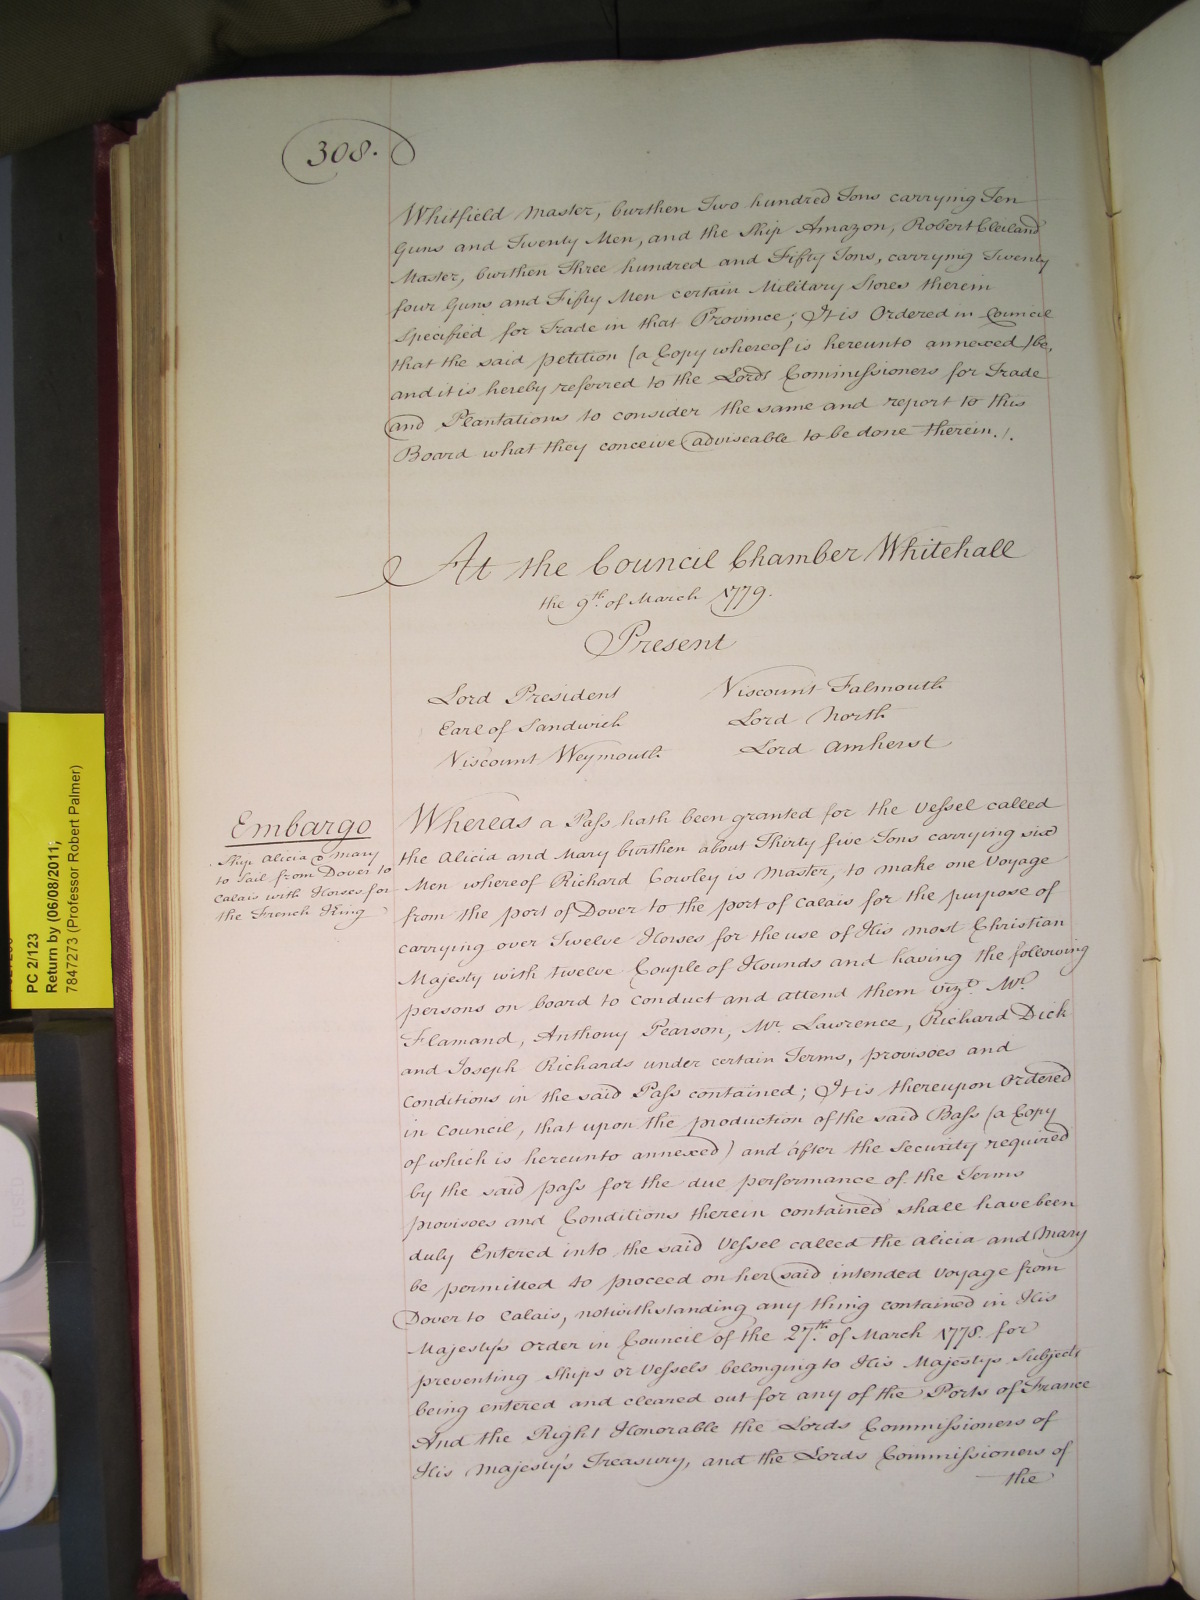 308.
Whitfield Master, burthen Two hundred Tons carrying Ten
Guns and Twenty Men, and the Ship Amazon, Robert Cleiland
Master, burthen Three hundred and Fifty Tons, carrying Twenty
four Guns and Fifty Men certain Military Stores therein
Specified for Trade in that Province; It is Ordered in Council
that the said petition (a Copy whereof is hereunto annexed) be,
and it is hereby referred to the Lords Commissioners for Trade
and Plantations to consider the same and report to this
Board what they conceive adviseable to be done therein./.
At the Council Chamber Whitehall
the 9th. of March 1779.
Present
Lord President
Earl of Sandwich
Viscount Weymouth
Viscount Falmouth
Lord North
Lord Amherst
Embargo
Ship Alicia & Mary
to Sail from Dover to
Calais with Horses for
the French King
Whereas a Pass hath been granted for the Vessel called
the Alicia and Mary burthen about Thirty five Tons carrying six
Men whereof Richard Cowley is Master, to make one Voyage
from the port of Dover to the port of Calais for the purpose of
carrying over Twelve Horses for the use of His most Christian
Majesty with twelve Couple of Hounds and having the following
persons on board to Conduct and attend them vizt. Mr.
Flamand, Anthony Pearson, Mr. Lawrence, Richard Dick
and Joseph Richards under certain Terms, provisoes and
Conditions in the said Pass contained; It is thereupon Ordered
in Council, that upon the production of the said Pass (a Copy
of which is hereunto annexed) and after the Security required
by the said pass for the due performance of the Terms
provisoes and Conditions therein contained shall have been
duly Entered into the said Vessel called the Alicia and Mary
be permitted to proceed on her said intended Voyage from
Dover to Calais, notwithstanding any thing contained in His
Majesty's Order in Council of the 27th. of March 1778. for
preventing Ships or Vessels belonging to His Majestys Subjects
being entered and cleared out for any of the Ports of France
And the Right Honorable the Lords Commissioners of
His Majesty's Treasury, and the Lords Commissioners of
the
PC 2/123
Return by (06/08/2011;
7847273 (Professor Robert Palmer)